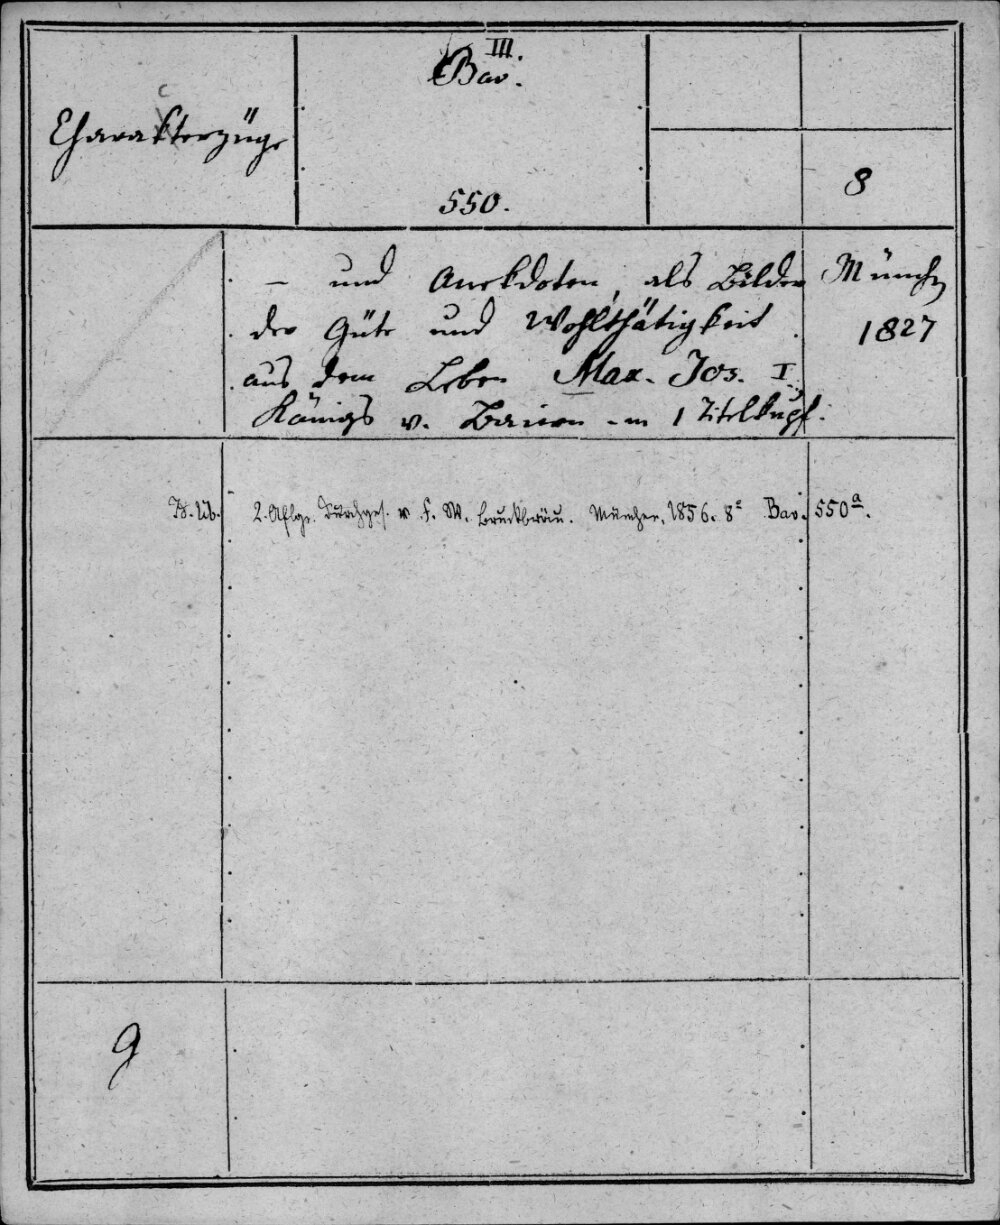 III.
Bav.
c
Charakterzüge
8
550.
– und Anekdoten, als Bilder
München
der Güte und Wohlthätigkeit
1827
aus dem Leben Max. Jos. I.
Königs v. Baiern - m 1 Titelkupf.
2. Aflge. Durchges. v. F. W. Bruckbräu. München, 1856. 8° Bav. 550a.
9